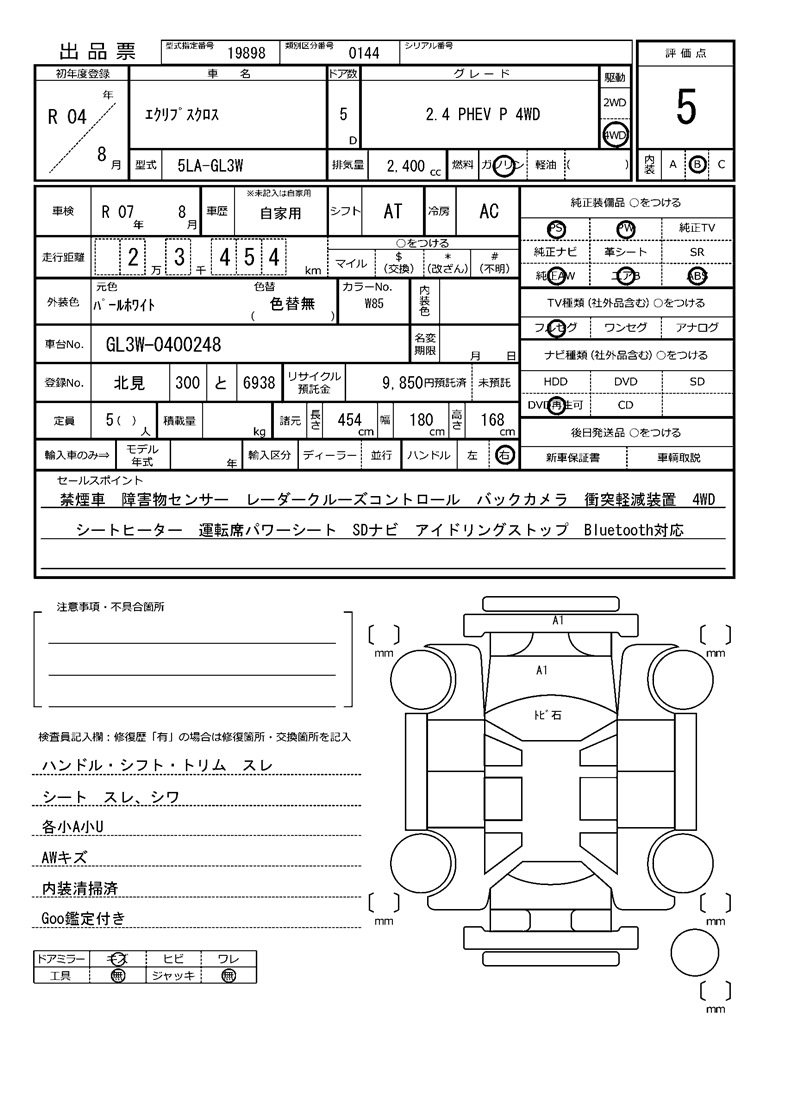 出品票 型式指定番号 19898 類別区分番号 0144 シリアル番号
評価点
5
内装 A B C
初年度登録 車名 ドア数 グレード 駆動
R 04 年 8 月 ｴｸﾘﾌﾟｽｸﾛｽ 5 D 2.4 PHEV P 4WD 2WD 4WD
型式 5LA-GL3W 排気量 2,400 cc 燃料 ガソリン 軽油 ( )
車検 R 07 年 8 月 車歴 ※未記入は自家用 自家用 シフト AT 冷房 AC
走行距離 2 万 3 千 4 5 4 km
○をつける
マイル $ (交換) * (改ざん) # (不明)
外装色 元色 ﾊﾟｰﾙﾎﾜｲﾄ 色替 ( 色替無 ) カラーNo. W85 内装色
車台No. GL3W-0400248 名変期限 月 日
登録No. 北見 300 と 6938 リサイクル預託金 9,850円預託済 未預託
定員 5 ( ) 人 積載量 kg 諸元 長さ 454 cm 幅 180 cm 高さ 168 cm
輸入車のみ⇒ モデル年式 年 輸入区分 ディーラー 並行 ハンドル 左 右
純正装備品 ○をつける
PS PW 純正TV
純正ナビ 革シート SR
純正AW エアB ABS
TV種類(社外品含む) ○をつける
フルセグ ワンセグ アナログ
ナビ種類(社外品含む) ○をつける
HDD DVD SD
DVD再生可 CD
後日発送品 ○をつける
新車保証書 車輌取説
セールスポイント
禁煙車 障害物センサー レーダークルーズコントロール バックカメラ 衝突軽減装置 4WD
シートヒーター 運転席パワーシート SDナビ アイドリングストップ Bluetooth対応
注意事項・不具合箇所
検査員記入欄：修復歴「有」の場合は修復箇所・交換箇所を記入
ハンドル・シフト・トリム スレ
シート スレ、シワ
各小A小U
AWキズ
内装清掃済
Goo鑑定付き
ドアミラー キズ ヒビ ワレ
工具 無 ジャッキ 無
A1
mm
mm
A1
ﾄﾋﾞ石
mm
mm
mm